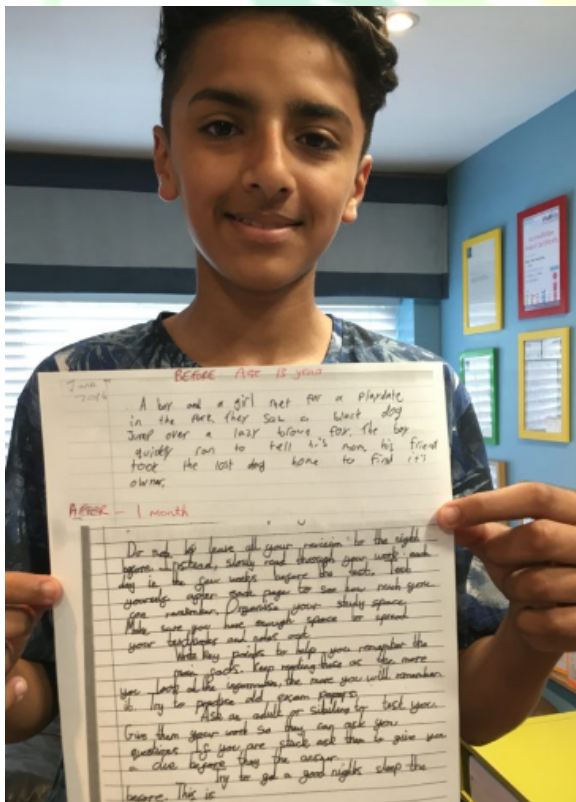 June
2016
BEFORE AGE 13 years
A boy and a girl met for a playdate
in the park. They saw a black dog
Jump over a lazy brown fox. The boy
quickly ran to tell his mom, his friend
took the lost dog home to find it's
owner.
AFTER - 1 month
Do not leave all your revision to the night
before. Instead, slowly read through your work each
day in the few weeks before the test. Test
yourself after each page to see how much you
can remember. Organise your study space.
Make sure you have enough space to spread
your textbooks and notes out.
Write key points to help you remember the
main facts. Keep reading these as the more
you look at the information, the more you will remember
it. Try to practise old exam papers.
Ask an adult or sibling to test you.
Give them your work so they can ask you
questions. If you are stuck ask them to give you
a clue before they the answer.
Try to get a good nights sleep the
before. This is